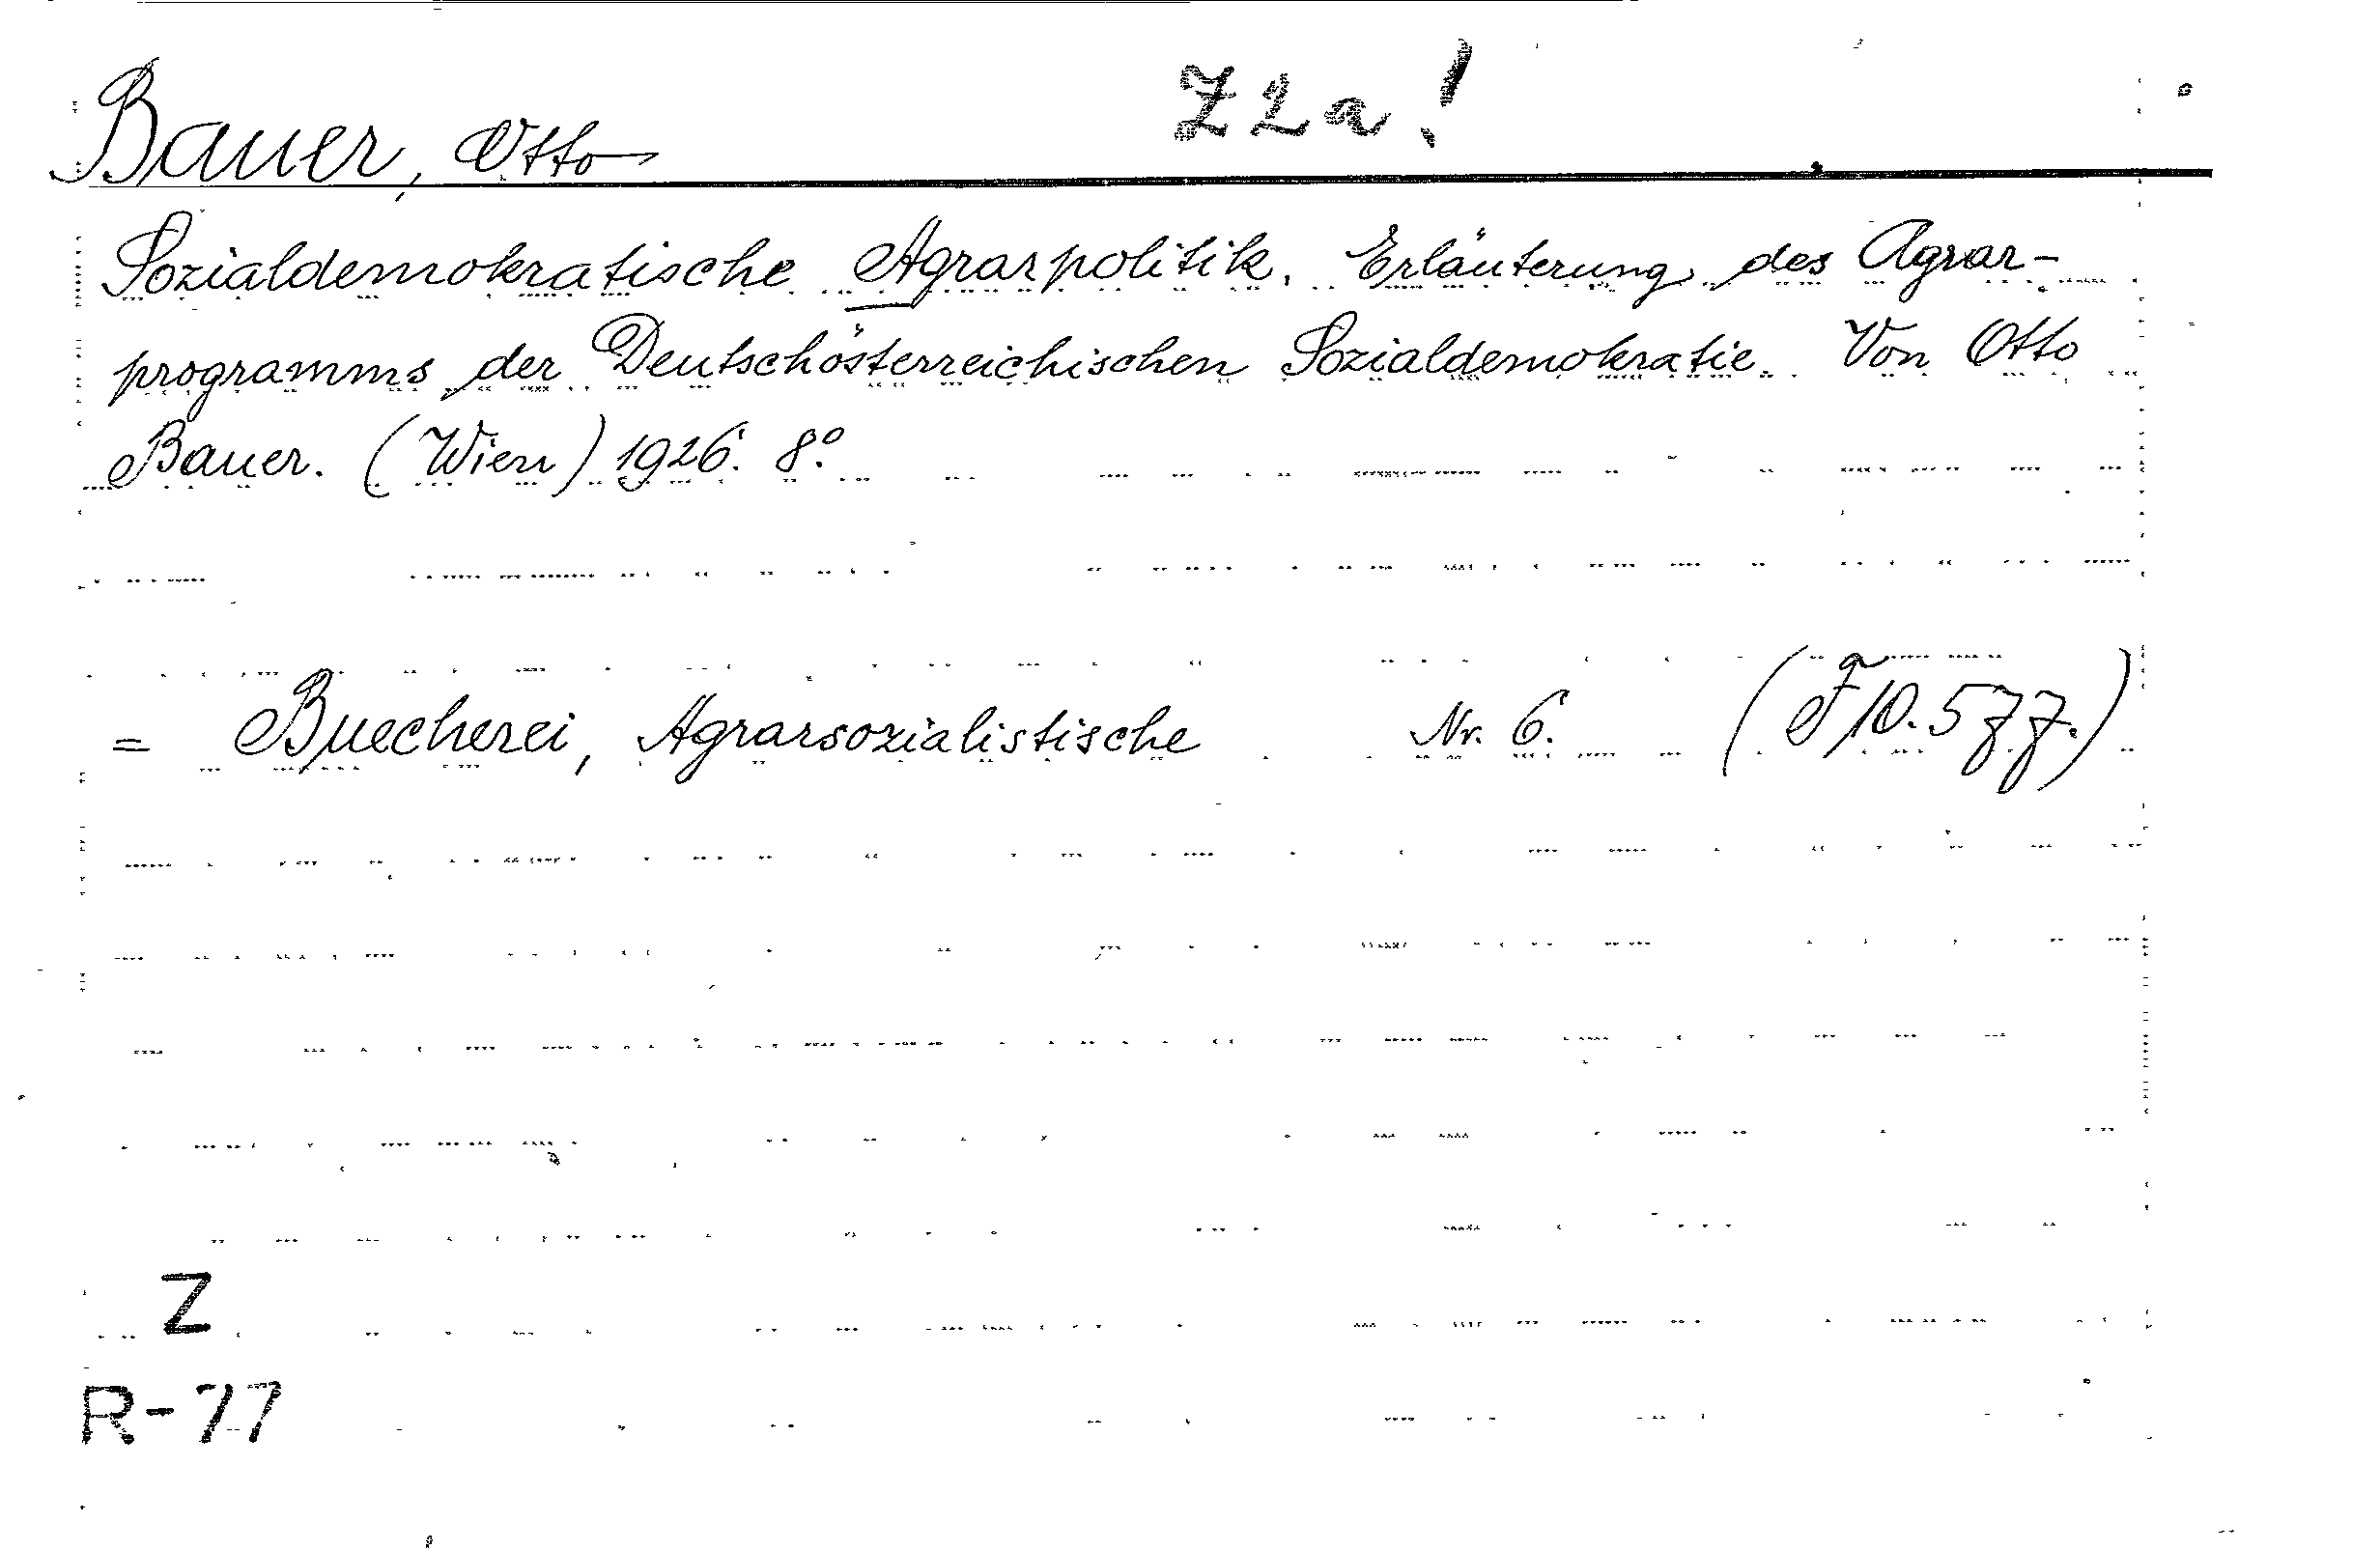 Z2a!
Bauer, Otto
Sozialdemokratische Agrarpolitik. Erläuterung des Agrar-
programms der Deutschösterreichischen Sozialdemokratie. Von Otto
Bauer. (Wien) 1926. 8°.
= Buecherei, Agrarsozialistische Nr. 6. (F10.577.)
Z
R-77